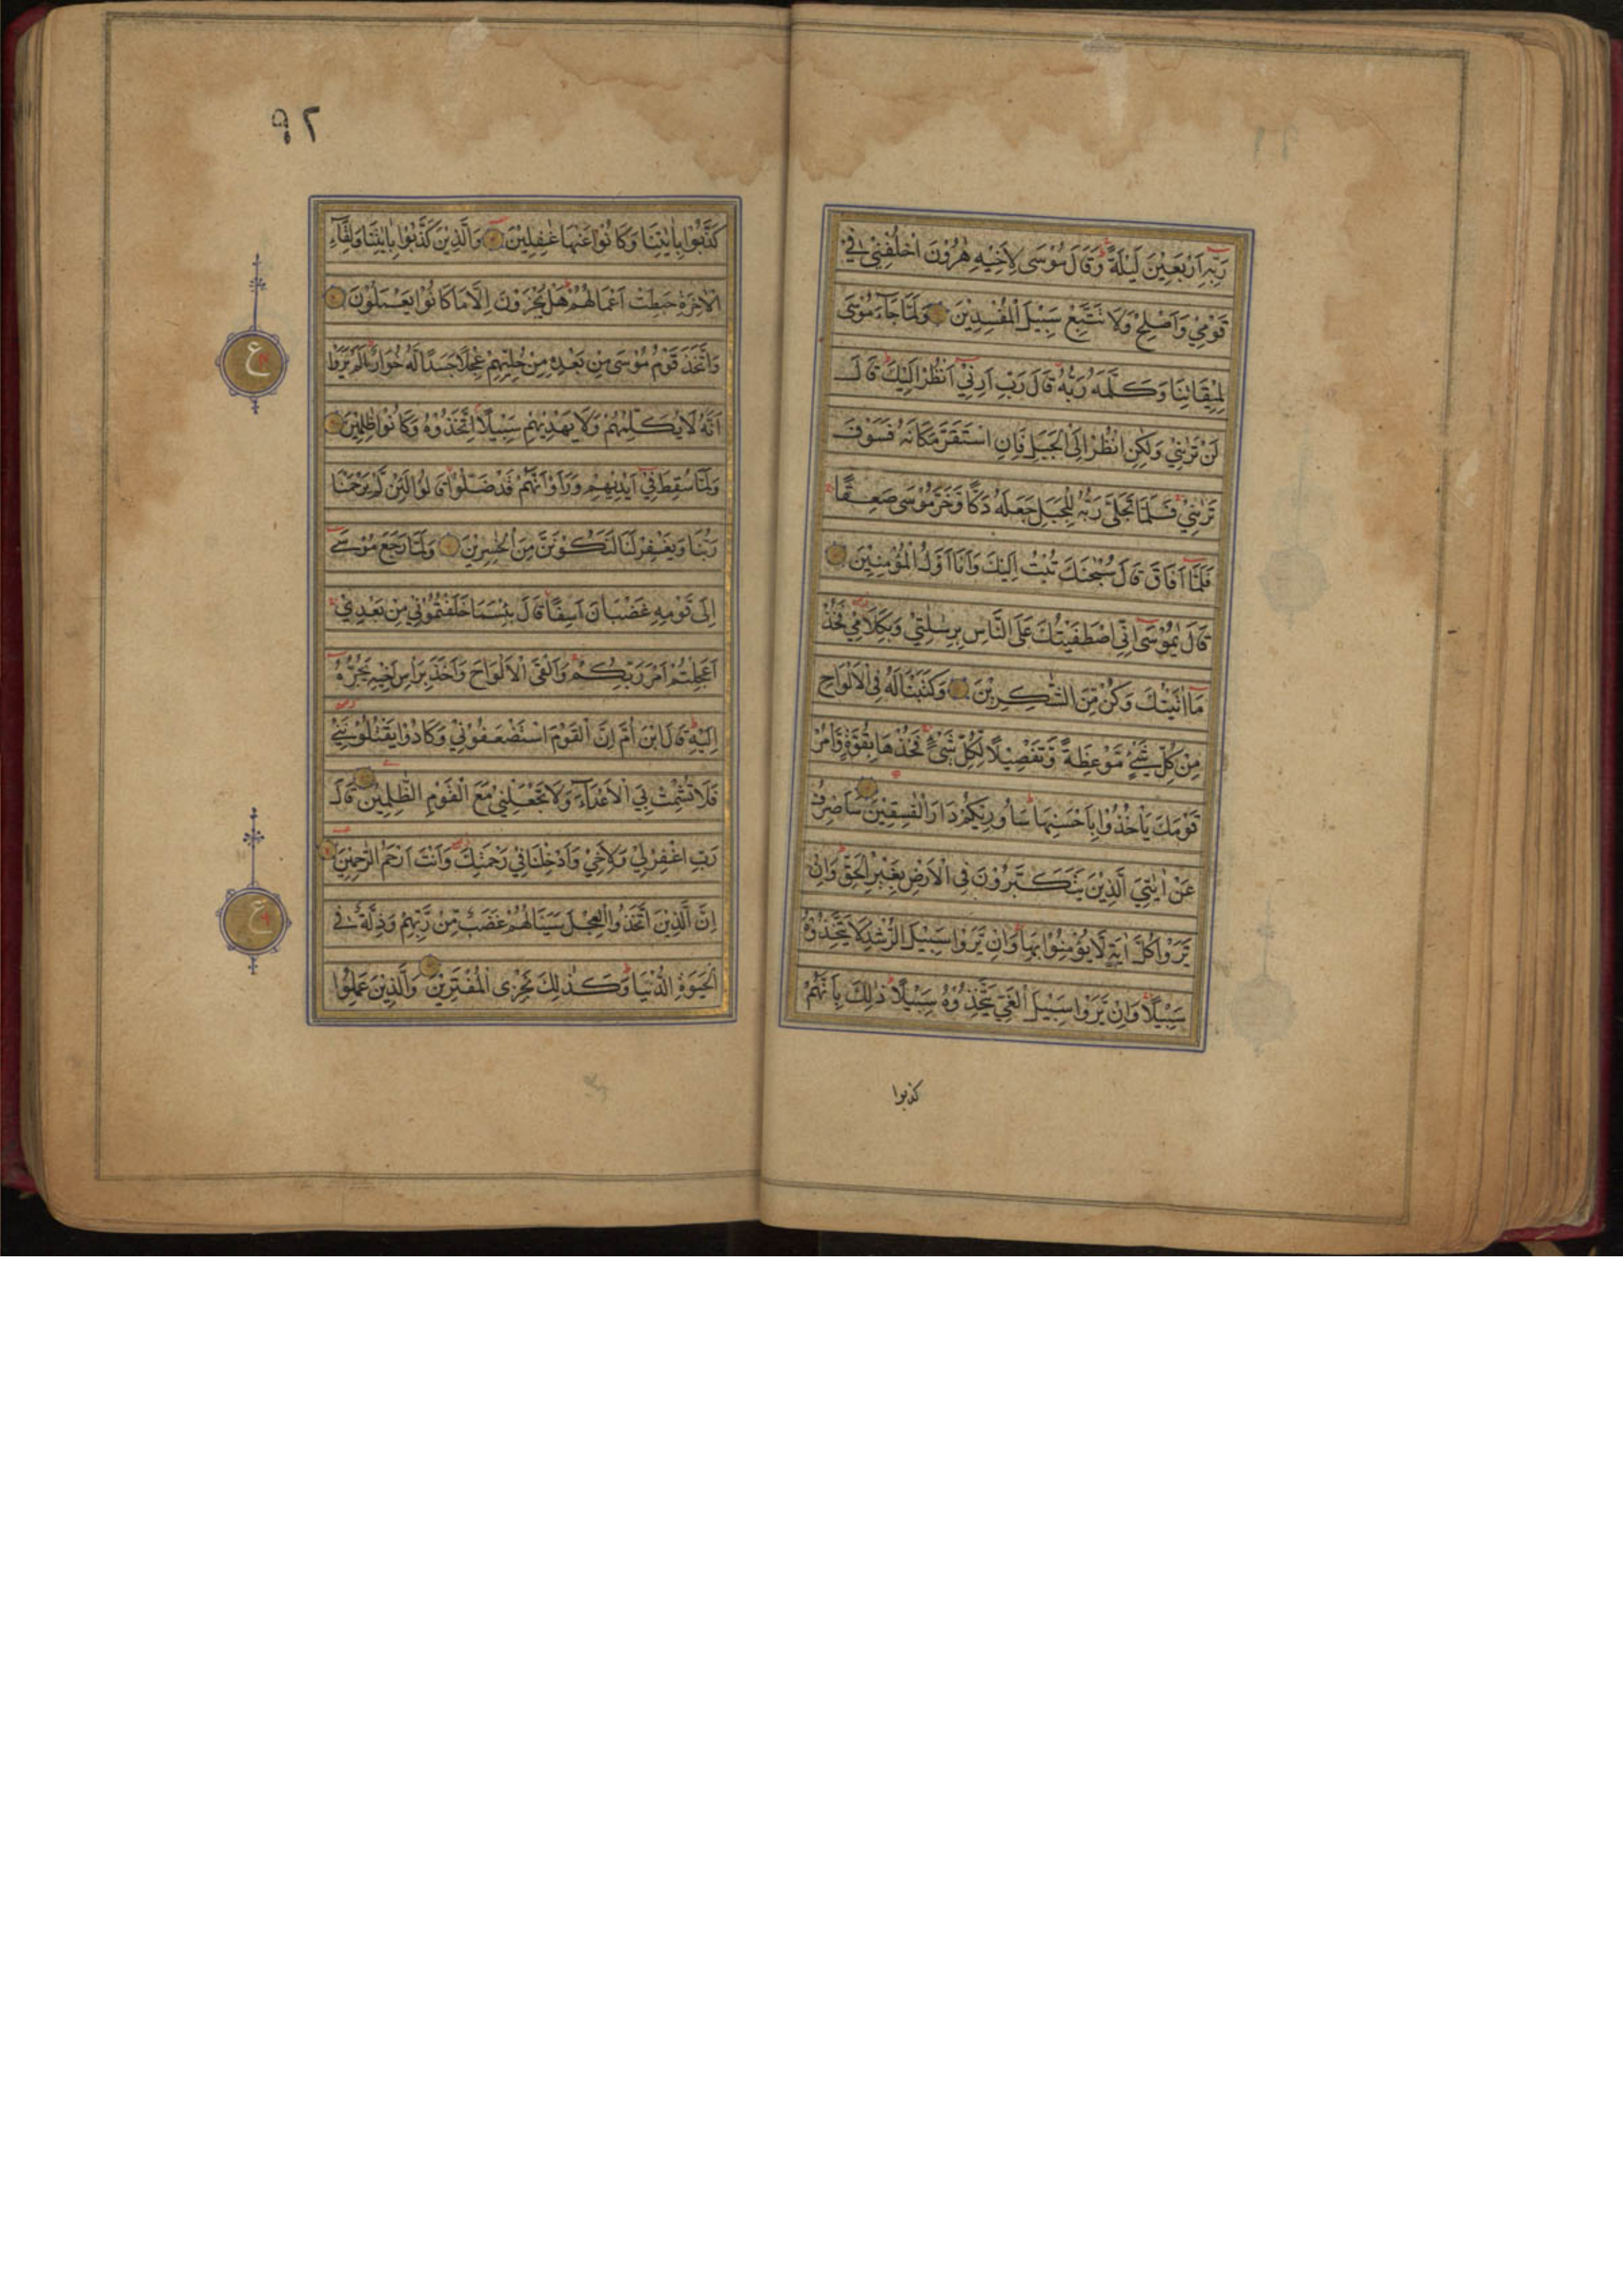 رَبِّهٖ اَرْبَعِيْنَ لَيْلَةً وَقَالَ مُوْسٰى لِاَخِيْهِ هٰرُوْنَ اخْلُفْنِيْ فِيْ
قَوْمِيْ وَاَصْلِحْ وَلَا تَتَّبِعْ سَبِيْلَ الْمُفْسِدِيْنَ وَلَمَّا جَآءَ مُوْسٰى
لِمِيْقَاتِنَا وَكَلَّمَهٗ رَبُّهٗ قَالَ رَبِّ اَرِنِيْ اَنْظُرْ اِلَيْكَ قَالَ
لَنْ تَرٰىنِيْ وَلٰكِنِ انْظُرْ اِلَى الْجَبَلِ فَاِنِ اسْتَقَرَّ مَكَانَهٗ فَسَوْفَ
تَرٰىنِيْ فَلَمَّا تَجَلّٰى رَبُّهٗ لِلْجَبَلِ جَعَلَهٗ دَكًّا وَّخَرَّ مُوْسٰى صَعِقًا
فَلَمَّا اَفَاقَ قَالَ سُبْحٰنَكَ تُبْتُ اِلَيْكَ وَاَنَا اَوَّلُ الْمُؤْمِنِيْنَ
قَالَ يٰمُوْسٰى اِنِّي اصْطَفَيْتُكَ عَلَى النَّاسِ بِرِسٰلٰتِيْ وَبِكَلَامِيْ فَخُذْ
مَا اٰتَيْتُكَ وَكُنْ مِّنَ الشّٰكِرِيْنَ وَكَتَبْنَا لَهٗ فِي الْاَلْوَاحِ
مِنْ كُلِّ شَيْءٍ مَّوْعِظَةً وَّتَفْصِيْلًا لِّكُلِّ شَيْءٍ فَخُذْهَا بِقُوَّةٍ وَّاْمُرْ
قَوْمَكَ يَاْخُذُوْا بِاَحْسَنِهَا سَاُورِيْكُمْ دَارَ الْفٰسِقِيْنَ سَاَصْرِفُ
عَنْ اٰيٰتِيَ الَّذِيْنَ يَتَكَبَّرُوْنَ فِي الْاَرْضِ بِغَيْرِ الْحَقِّ وَاِنْ
يَّرَوْا كُلَّ اٰيَةٍ لَّا يُؤْمِنُوْا بِهَا وَاِنْ يَّرَوْا سَبِيْلَ الرُّشْدِ لَا يَتَّخِذُوْهُ
سَبِيْلًا وَاِنْ يَّرَوْا سَبِيْلَ الْغَيِّ يَتَّخِذُوْهُ سَبِيْلًا ذٰلِكَ بِاَنَّهُمْ
كذبوا
٩٢
كَذَّبُوْا بِاٰيٰتِنَا وَكَانُوْا عَنْهَا غٰفِلِيْنَ وَالَّذِيْنَ كَذَّبُوْا بِاٰيٰتِنَا وَلِقَآءِ
الْاٰخِرَةِ حَبِطَتْ اَعْمَالُهُمْ هَلْ يُجْزَوْنَ اِلَّا مَا كَانُوْا يَعْمَلُوْنَ
وَاتَّخَذَ قَوْمُ مُوْسٰى مِنْ بَعْدِهٖ مِنْ حُلِيِّهِمْ عِجْلًا جَسَدًا لَّهٗ خُوَارٌ اَلَمْ يَرَوْا
اَنَّهٗ لَا يُكَلِّمُهُمْ وَلَا يَهْدِيْهِمْ سَبِيْلًا اِتَّخَذُوْهُ وَكَانُوْا ظٰلِمِيْنَ
وَلَمَّا سُقِطَ فِيْ اَيْدِيْهِمْ وَرَاَوْا اَنَّهُمْ قَدْ ضَلُّوْا قَالُوْا لَئِنْ لَّمْ يَرْحَمْنَا
رَبُّنَا وَيَغْفِرْ لَنَا لَنَكُوْنَنَّ مِنَ الْخٰسِرِيْنَ وَلَمَّا رَجَعَ مُوْسٰى
اِلٰى قَوْمِهٖ غَضْبَانَ اَسِفًا قَالَ بِئْسَمَا خَلَفْتُمُوْنِيْ مِنْ بَعْدِيْ
اَعَجِلْتُمْ اَمْرَ رَبِّكُمْ وَاَلْقَى الْاَلْوَاحَ وَاَخَذَ بِرَاْسِ اَخِيْهِ يَجُرُّهٗ
اِلَيْهِ قَالَ ابْنَ اُمَّ اِنَّ الْقَوْمَ اسْتَضْعَفُوْنِيْ وَكَادُوْا يَقْتُلُوْنَنِيْ
فَلَا تُشْمِتْ بِيَ الْاَعْدَآءَ وَلَا تَجْعَلْنِيْ مَعَ الْقَوْمِ الظّٰلِمِيْنَ قَالَ
رَبِّ اغْفِرْ لِيْ وَلِاَخِيْ وَاَدْخِلْنَا فِيْ رَحْمَتِكَ وَاَنْتَ اَرْحَمُ الرّٰحِمِيْنَ
اِنَّ الَّذِيْنَ اتَّخَذُوا الْعِجْلَ سَيَنَالُهُمْ غَضَبٌ مِّنْ رَّبِّهِمْ وَذِلَّةٌ فِي
الْحَيٰوةِ الدُّنْيَا وَكَذٰلِكَ نَجْزِي الْمُفْتَرِيْنَ وَالَّذِيْنَ عَمِلُوا
ع
ع